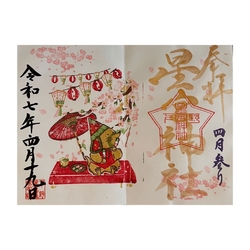 奉拝
四月参り
星合神社
令和七年四月十九日